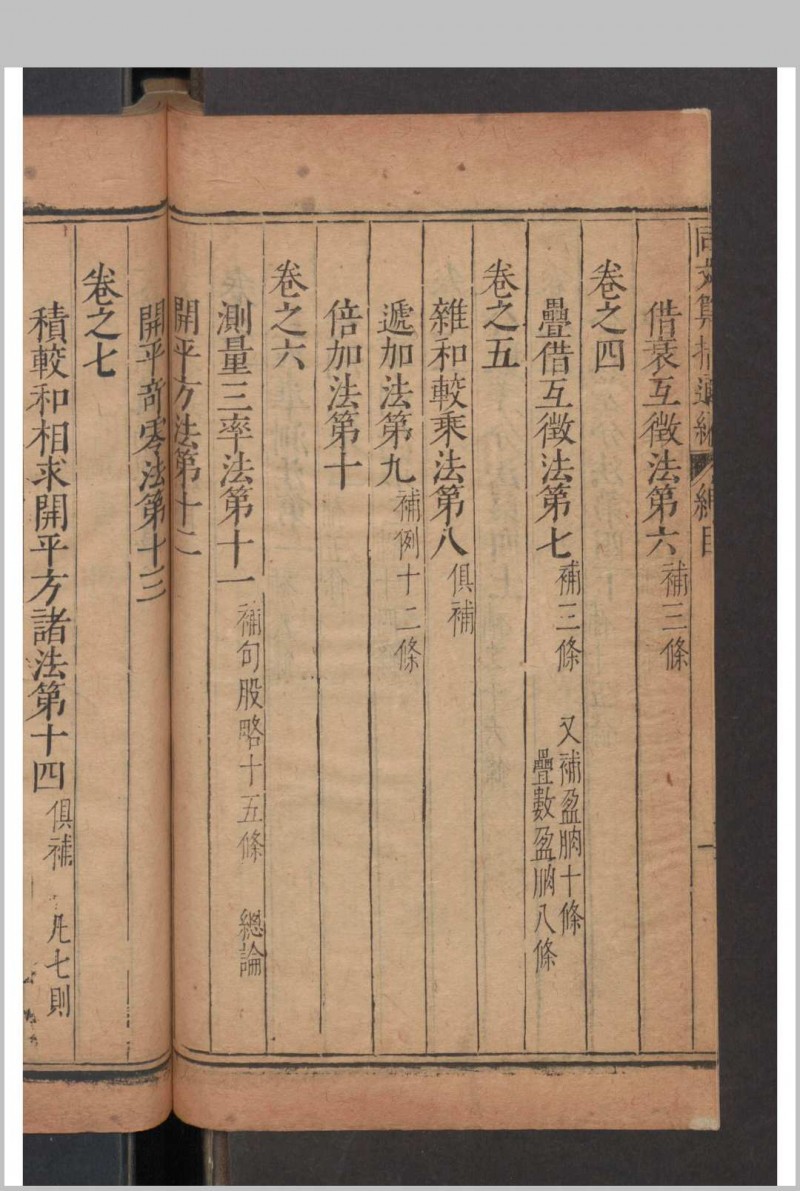 同文算指通編 總目 一
借衰互徵法第六 補三條
卷之四
疊借互徵法第七 補三條 又補盈朒十條 疊數盈朒八條
卷之五
雜和較乘法第八 俱補
遞加法第九 補例十二條
倍加法第十
卷之六
測量三率法第十一 補句股略十五條 總論
開平方法第十二
開平奇零法第十三
卷之七
積較和相求開平方諸法第十四 俱補 凡七則